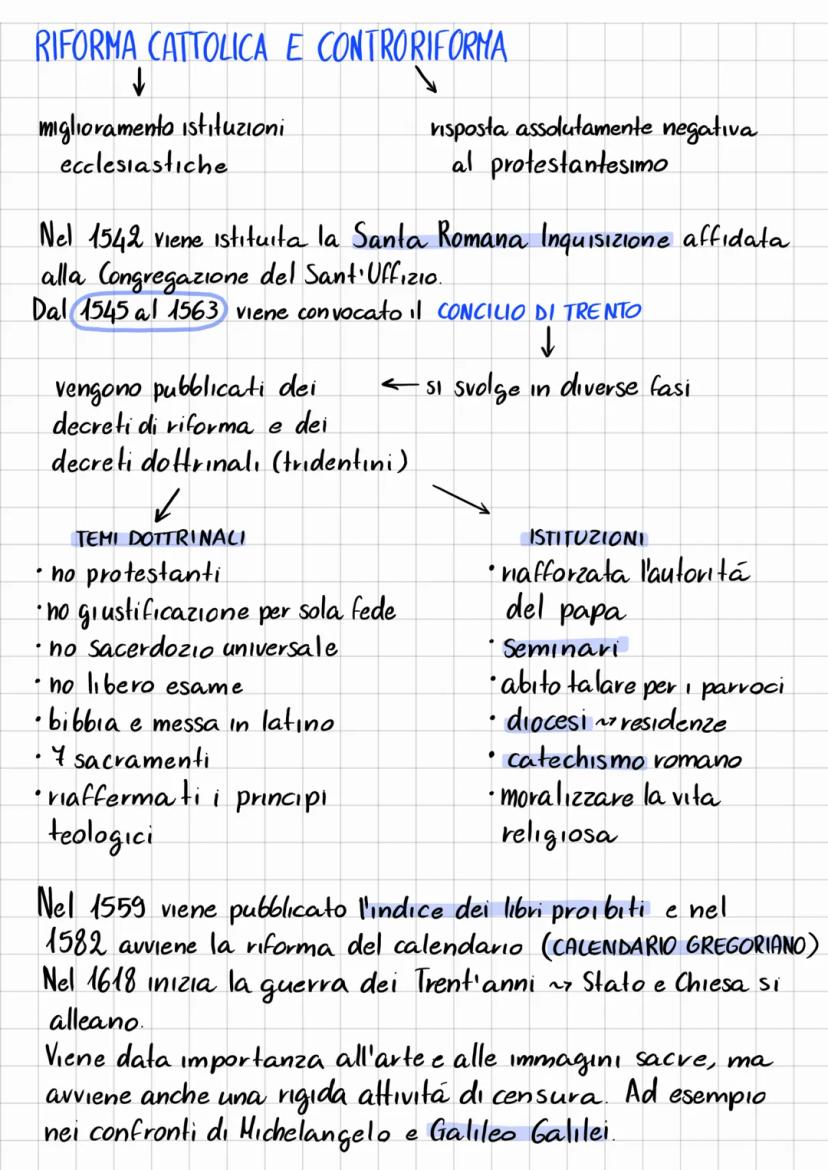 RIFORMA CATTOLICA E CONTRORIFORMA
↓ ↘
miglioramento istituzioni
ecclesiastiche
risposta assolutamente negativa
al protestantesimo
Nel 1542 viene istituita la Santa Romana Inquisizione affidata
alla Congregazione del Sant'Uffizio.
Dal 1545 al 1563 viene convocato il CONCILIO DI TRENTO
↓
← si svolge in diverse fasi
vengono pubblicati dei
decreti di riforma e dei
decreti dottrinali (tridentini)
↙ ↘
TEMI DOTTRINALI
• no protestanti
• no giustificazione per sola fede
• no sacerdozio universale
• no libero esame
• bibbia e messa in latino
• 7 sacramenti
• riaffermati i principi
teologici
ISTITUZIONI
• riafforzata l'autoritá
del papa
• seminari
• abito talare per i parroci
• diocesi ⤳ residenze
• catechismo romano
• moralizzare la vita
religiosa
Nel 1559 viene pubblicato l'indice dei libri proibiti e nel
1582 avviene la riforma del calendario (CALENDARIO GREGORIANO)
Nel 1618 inizia la guerra dei Trent'anni ⤳ Stato e Chiesa si
alleano.
Viene data importanza all'arte e alle immagini sacre, ma
avviene anche una rigida attivitá di censura. Ad esempio
nei confronti di Michelangelo e Galileo Galilei.